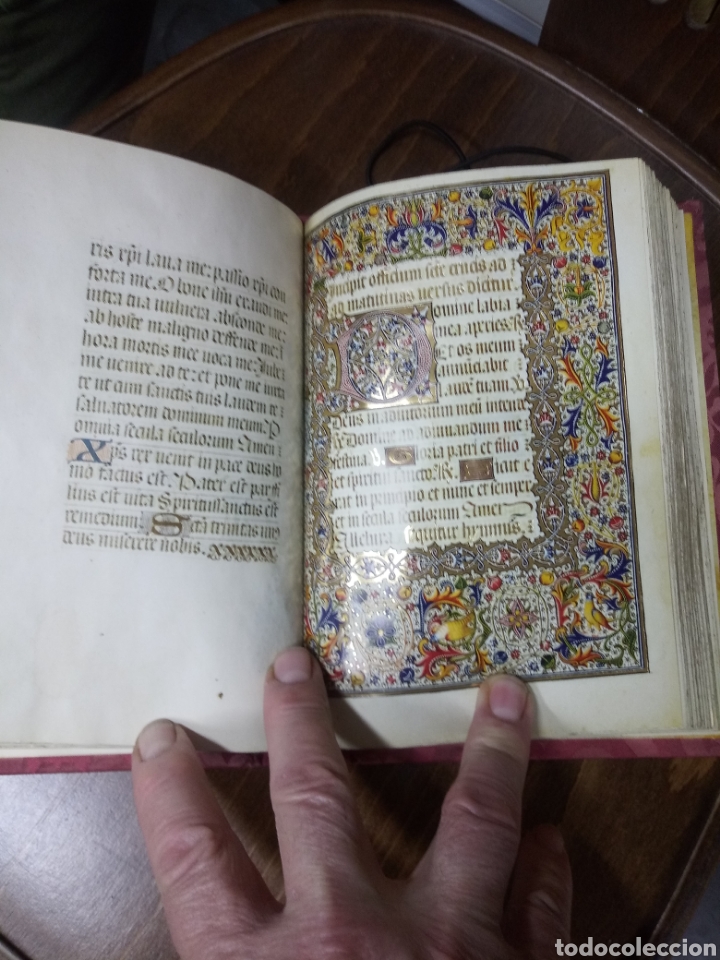 ris xp̄i laua me: passio xp̄i con
forta me. O bone iħu exaudi me:
intra tua vulnera absconde me:
ab hoste maligno deffende me:
hora mortis mee uoca me: iube
me uenire ad te: et pone me iuxta
te ut cum sanctis tuis laudem te
saluatorem dominum meum. P
omnia secula seculorum Amen
Xp̄s rex uenit in pace deus ho
mo factus est Pater est parffi
lius est uita Spiritussanctus est
remedium. Sc̄tā trinitas unus
deus miserere nobis. xxxxxx
ncipit officium sc̄te crucis ad
ad matutinas versus dicitur
Domine labia
mea aperies. R
Et os meum
nunciabit
laudē tuam. V
Deus in adiutorium meū intende
Domine ad adiuuandum me
festina. Gloria patri et filio
et spiritui sancto. R Sicut e
rat in principio et nunc et semper
et in secula seculorum Amen
Alleluya. sequitur hymnus.
todocoleccion